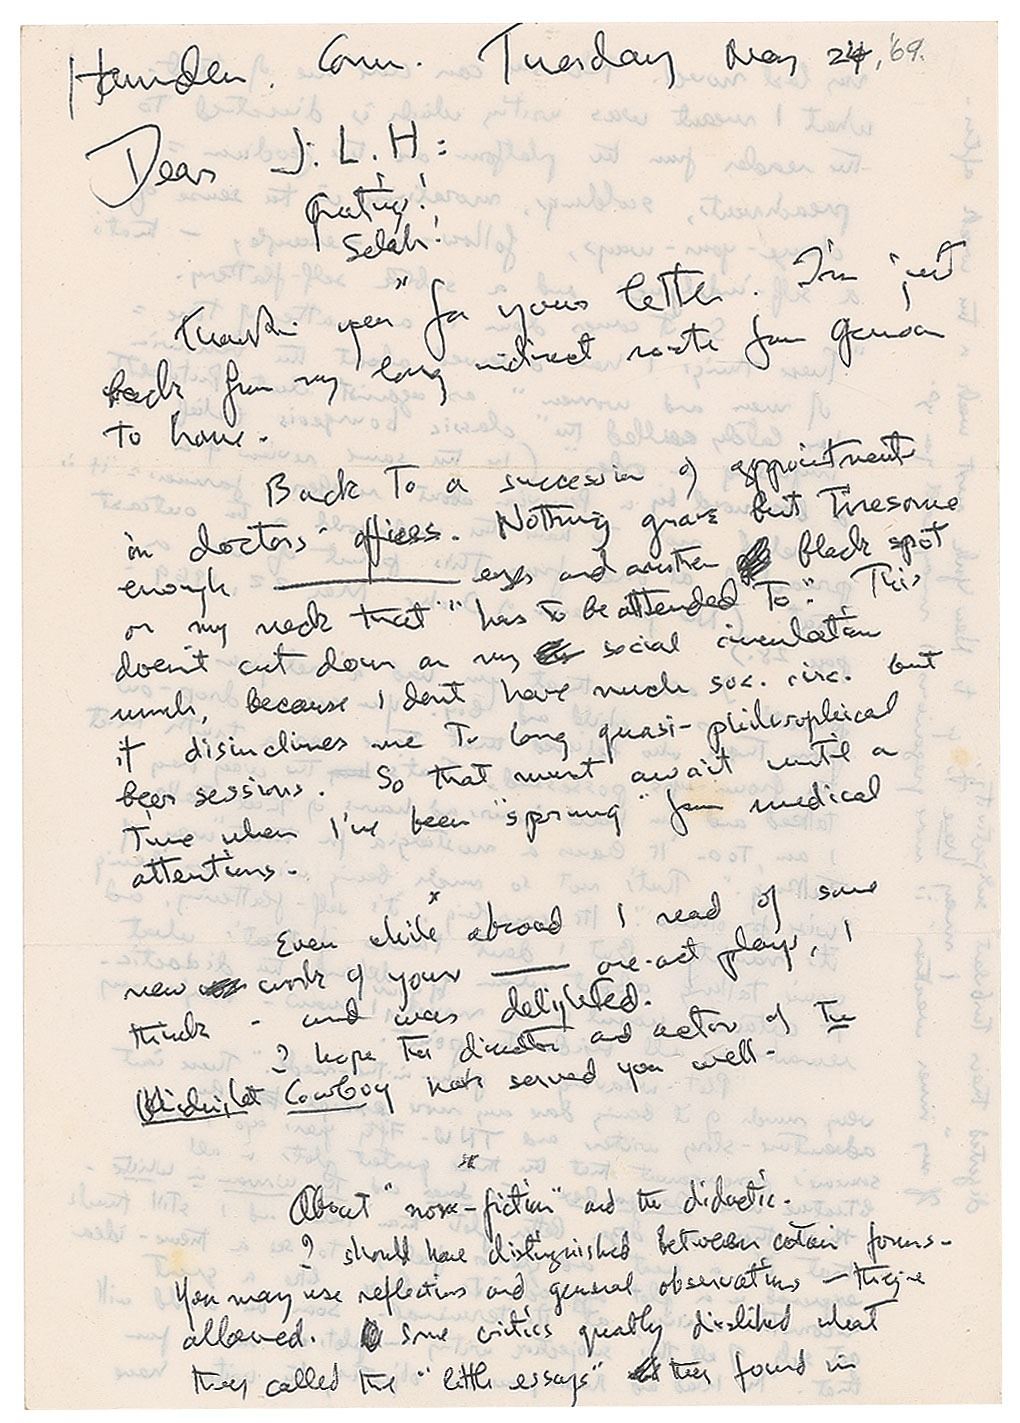 Hamden. Conn. Tuesday May 24, '69.
Dear J. L. H:
Greetings!
Selah!
*
Thank you for your letter. I'm just
back from my long indirect route from
to home.
Back to a succession of appointments
in doctors' offices. Nothing grave but tiresome
enough — eyes and another black spot
on my neck that "has to be attended to." This
doesn't cut down on my social circulation
much, because I don't have much soc. circ. but
it disinclines me to long quasi-philosophical
beer sessions. So that must await until a
time when I've been "sprung" from medical
attentions.
*
Even while abroad I read of some
new work of yours — one-act plays, I
think - and was delighted.
I hope the director and actor of The
Midnight Cowboy have served you well.
*
About "non-fiction" and the didactic.
I should have distinguished between certain forms.
You may use reflections and general observations — they're
allowed. Some critics greatly disliked what
they called the "little essays" they found in